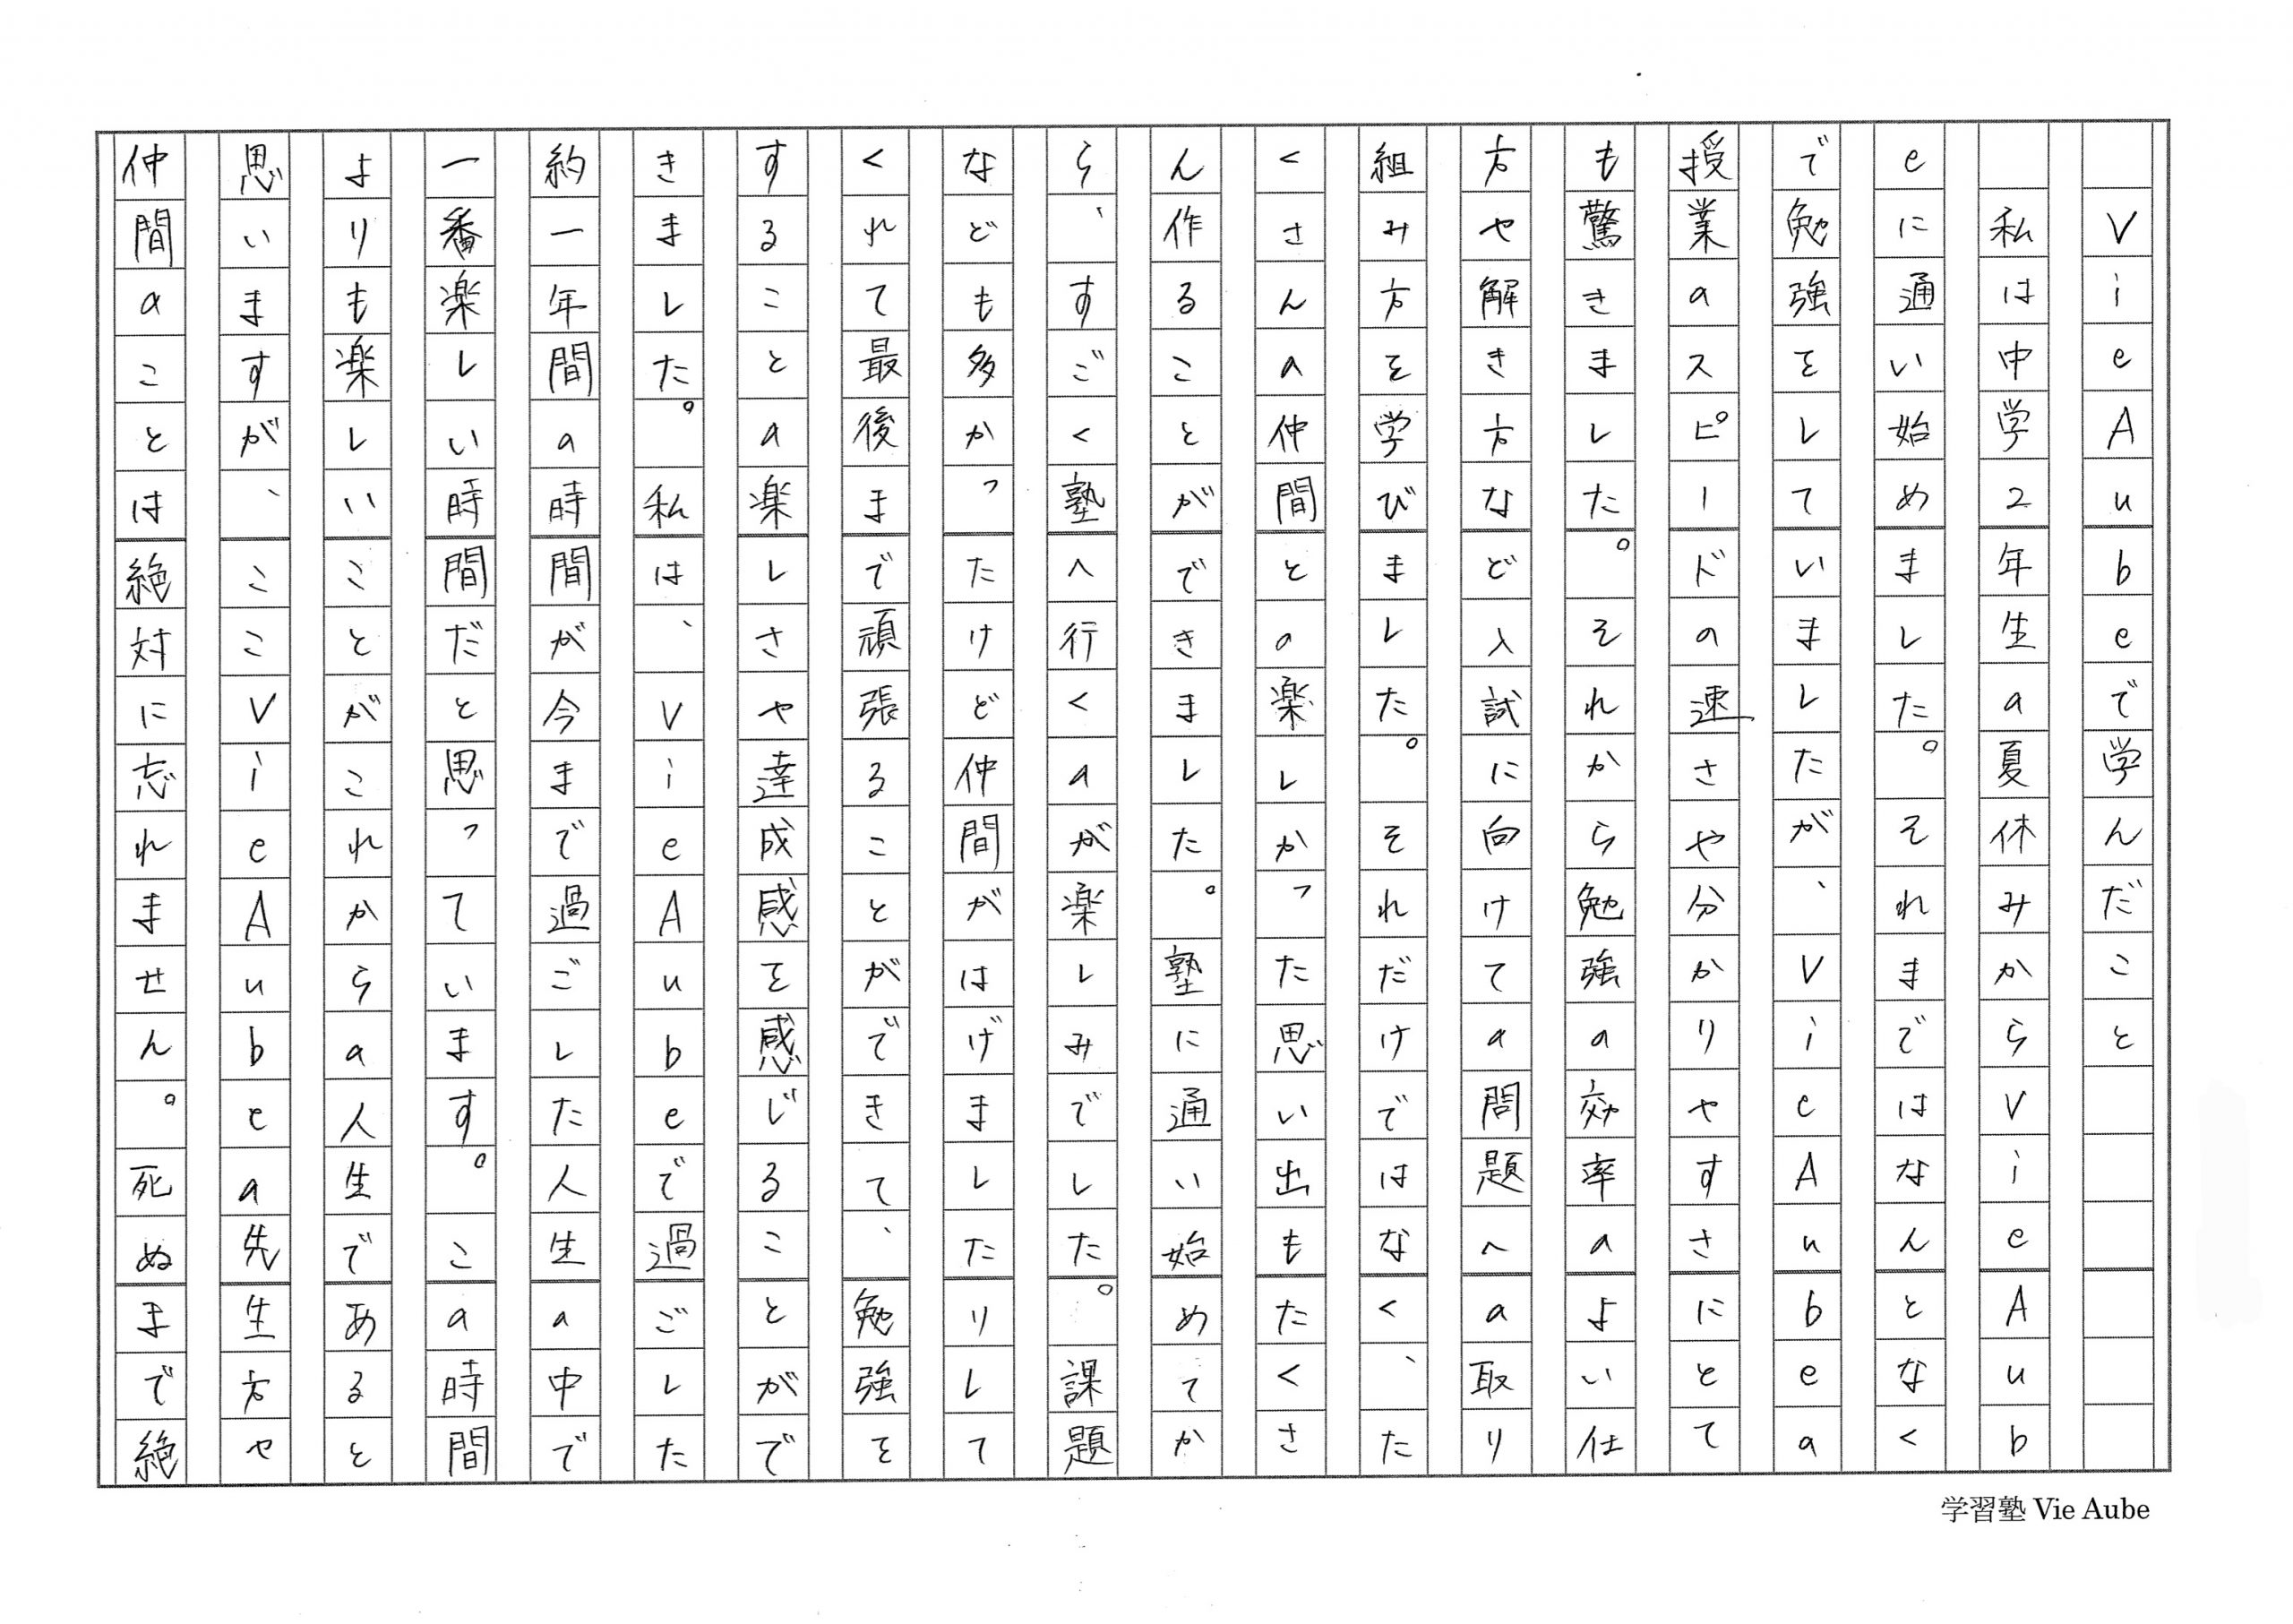 VieAubeで学んだこと
私は中学2年生の夏休みからVieAub
eに通い始めました。それまではなんとなく
で勉強をしていましたが、VieAubeの
授業のスピードの速さや分かりやすさにとて
も驚きました。それから勉強の効率のよい仕
方や解き方など入試に向けての問題への取り
組み方を学びました。それだけではなく、た
くさんの仲間との楽しかった思い出もたくさ
ん作ることができました。塾に通い始めてか
ら、すごく塾へ行くのが楽しみでした。課題
なども多かったけど仲間がはげましたりして
くれて最後まで頑張ることができて、勉強を
することの楽しさや達成感を感じることがで
きました。私は、VieAubeで過ごした
約一年間の時間が今まで過ごした人生の中で
一番楽しい時間だと思っています。この時間
よりも楽しいことがこれからの人生であると
思いますが、ここVieAubeの先生方や
仲間のことは絶対に忘れません。死ぬまで絶
学習塾 Vie Aube